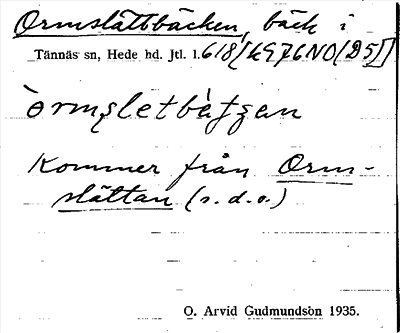 Ormslättbäcken, bäck i
Tännäs sn, Hede hd. Jtl. 1. 618[kG76NO(D5)]
òrmsletbètʒan
Kommer från Orm-
slättan (s. d. o.)
O. Arvid Gudmundson 1935.